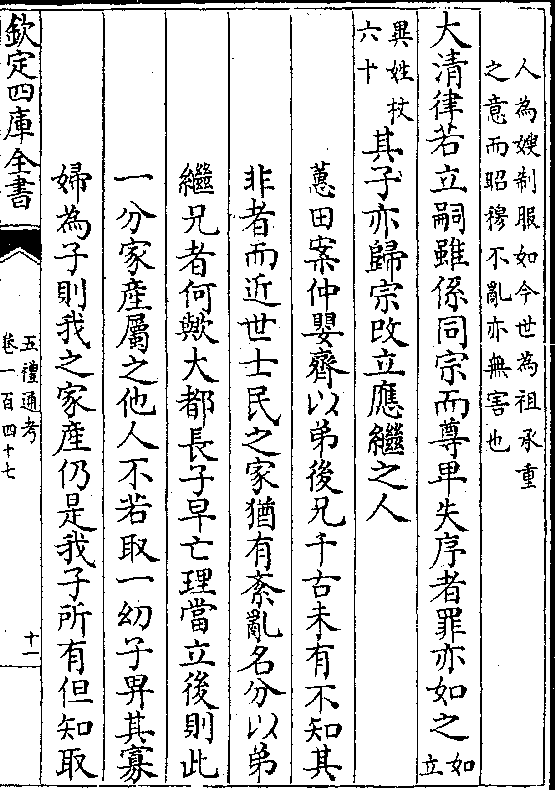 人為嫂制服如今世為祖承重
之意而昭穆不亂亦無害也
大清律若立嗣雖係同宗而尊卑失序者罪亦如之如立
異姓杖六十其子亦歸宗改立應繼之人
蕙田案仲嬰齊以弟後兄千古未有不知其
非者而近世士民之家猶有紊亂名分以弟
繼兄者何歟大都長子早亡理當立後則此
一分家產屬之他人不若取一幼子畀其寡
婦為子則我之家產仍是我子所有但知取
欽定四庫全書
五禮通考
卷一百四十七
十一